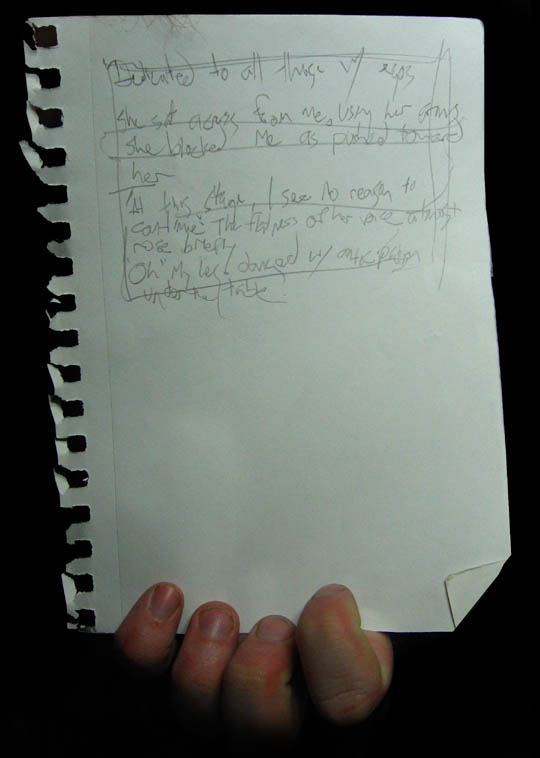 Dedicated to all those w/
She sat across from me, using her arms
she blocked me as pushed toward
her
"At this stage, I see no reason to
continue" The flatness of her voice almost
rose briefly
"Oh" My legs danced w/ anticipation
under the table.